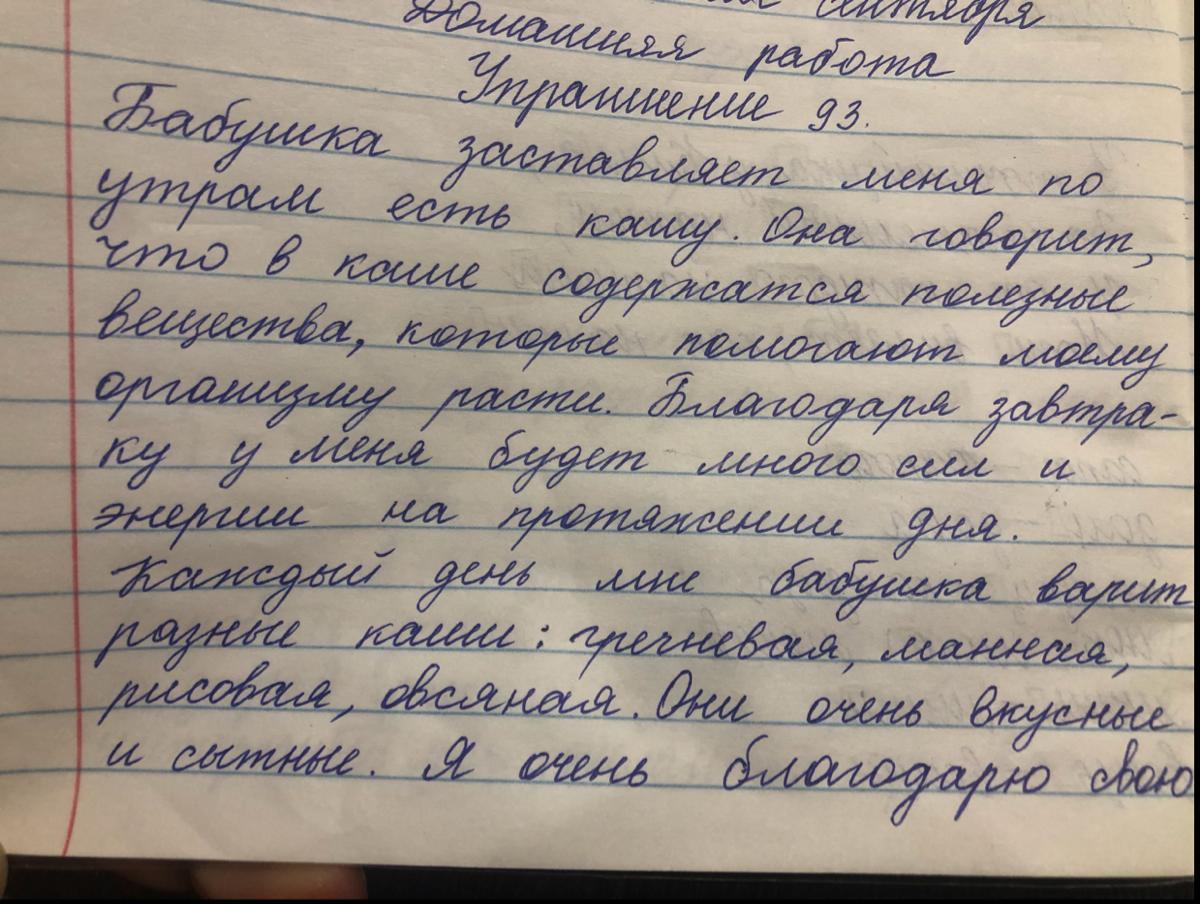 сентября
Домашняя работа
Упражнение 93.
Бабушка заставляет меня по
утрам есть кашу. Она говорит,
что в каше содержатся полезные
вещества, которые помогают моему
организму расти. Благодаря завтра-
ку у меня будет много сил и
энергии на протяжении дня.
Каждый день мне бабушка варит
разные каши: гречневая, манная,
рисовая, овсяная. Они очень вкусные
и сытные. Я очень благодарю свою